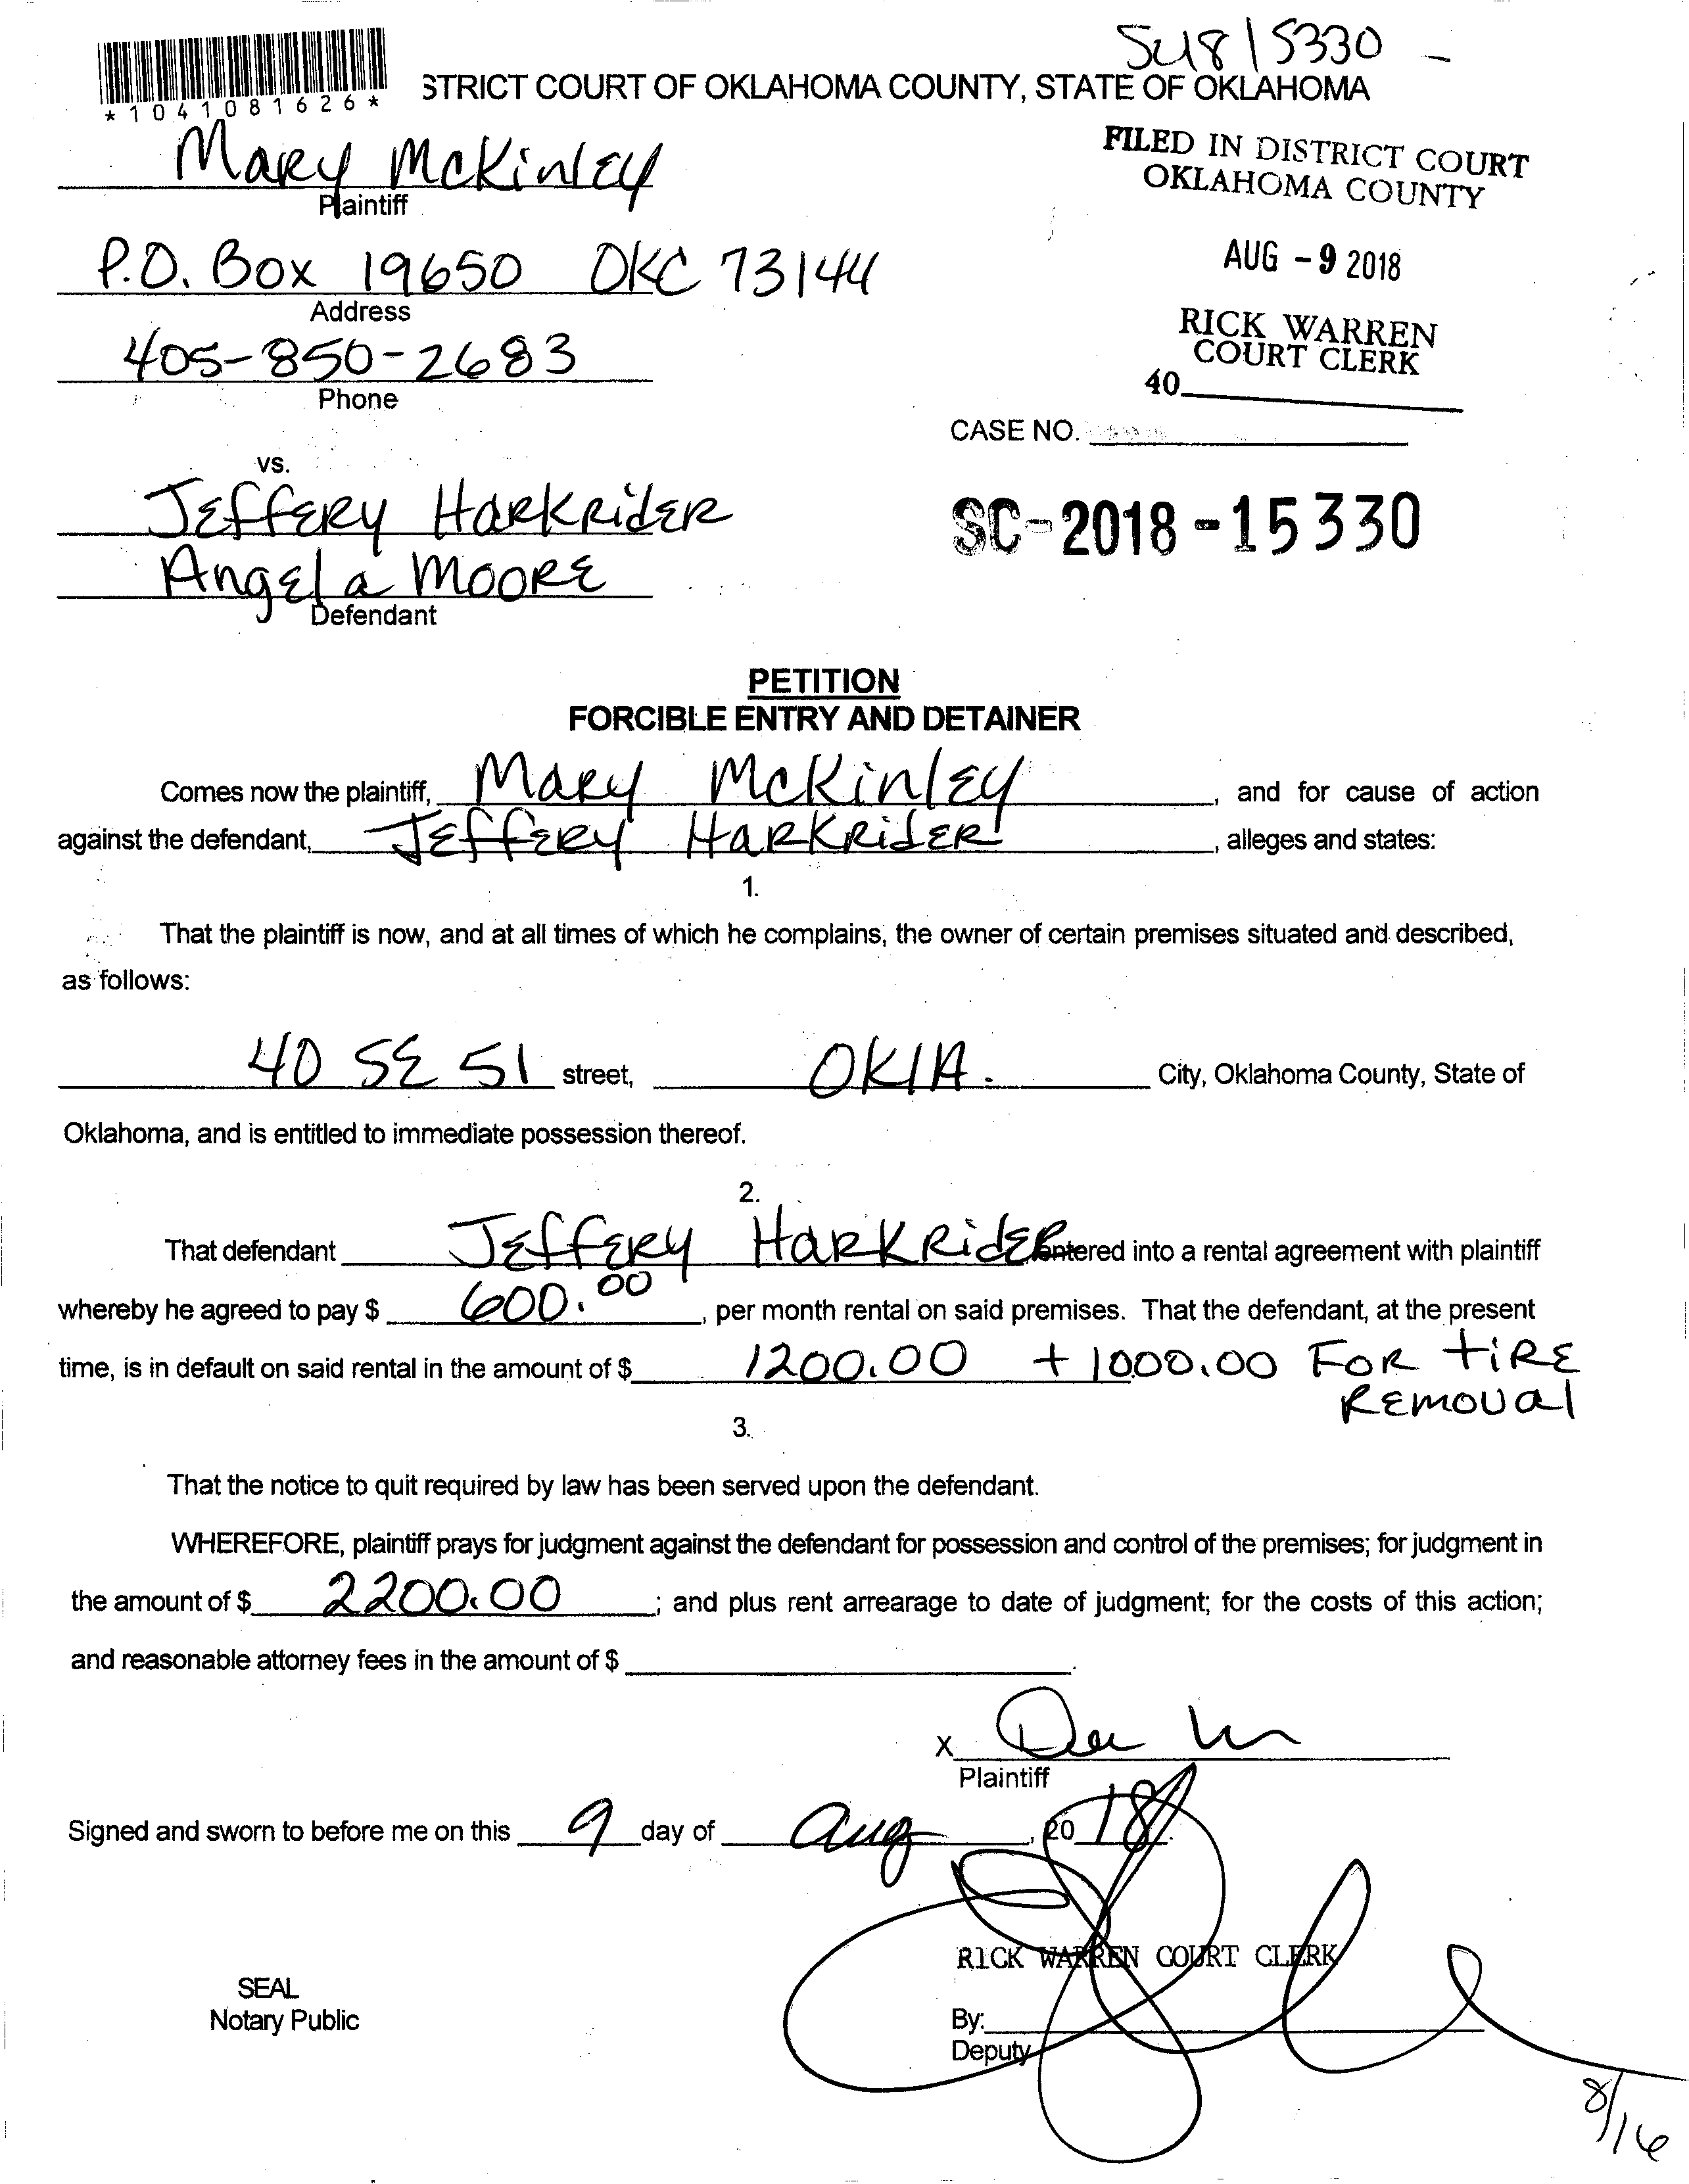 SC18 15330 -
*1041081626*
STRICT COURT OF OKLAHOMA COUNTY, STATE OF OKLAHOMA
Mary McKinley
Plaintiff
FILED IN DISTRICT COURT
OKLAHOMA COUNTY
P.O. Box 19650 OKC 73144
Address
AUG - 9 2018
405-850-2683
Phone
RICK WARREN
COURT CLERK
40
CASE NO.
vs.
Jeffery Harkrider
Angela Moore
Defendant
SC-2018-15330
PETITION
FORCIBLE ENTRY AND DETAINER
Comes now the plaintiff, Mary McKinley, and for cause of action
against the defendant, Jeffery Harkrider, alleges and states:
1.
That the plaintiff is now, and at all times of which he complains, the owner of certain premises situated and described,
as follows:
40 SE 51 street, OKlA. City, Oklahoma County, State of
Oklahoma, and is entitled to immediate possession thereof.
2.
That defendant Jeffery Harkrider entered into a rental agreement with plaintiff
whereby he agreed to pay $ 600.00, per month rental on said premises. That the defendant, at the present
time, is in default on said rental in the amount of $ 1200.00 + 1000.00 For tire
Removal
3.
That the notice to quit required by law has been served upon the defendant.
WHEREFORE, plaintiff prays for judgment against the defendant for possession and control of the premises; for judgment in
the amount of $ 2200.00; and plus rent arrearage to date of judgment; for the costs of this action;
and reasonable attorney fees in the amount of $ .
X
Plaintiff
Signed and sworn to before me on this 9 day of Aug, 2018.
RICK WARREN COURT CLERK
SEAL
Notary Public
By:
Deputy
8/16